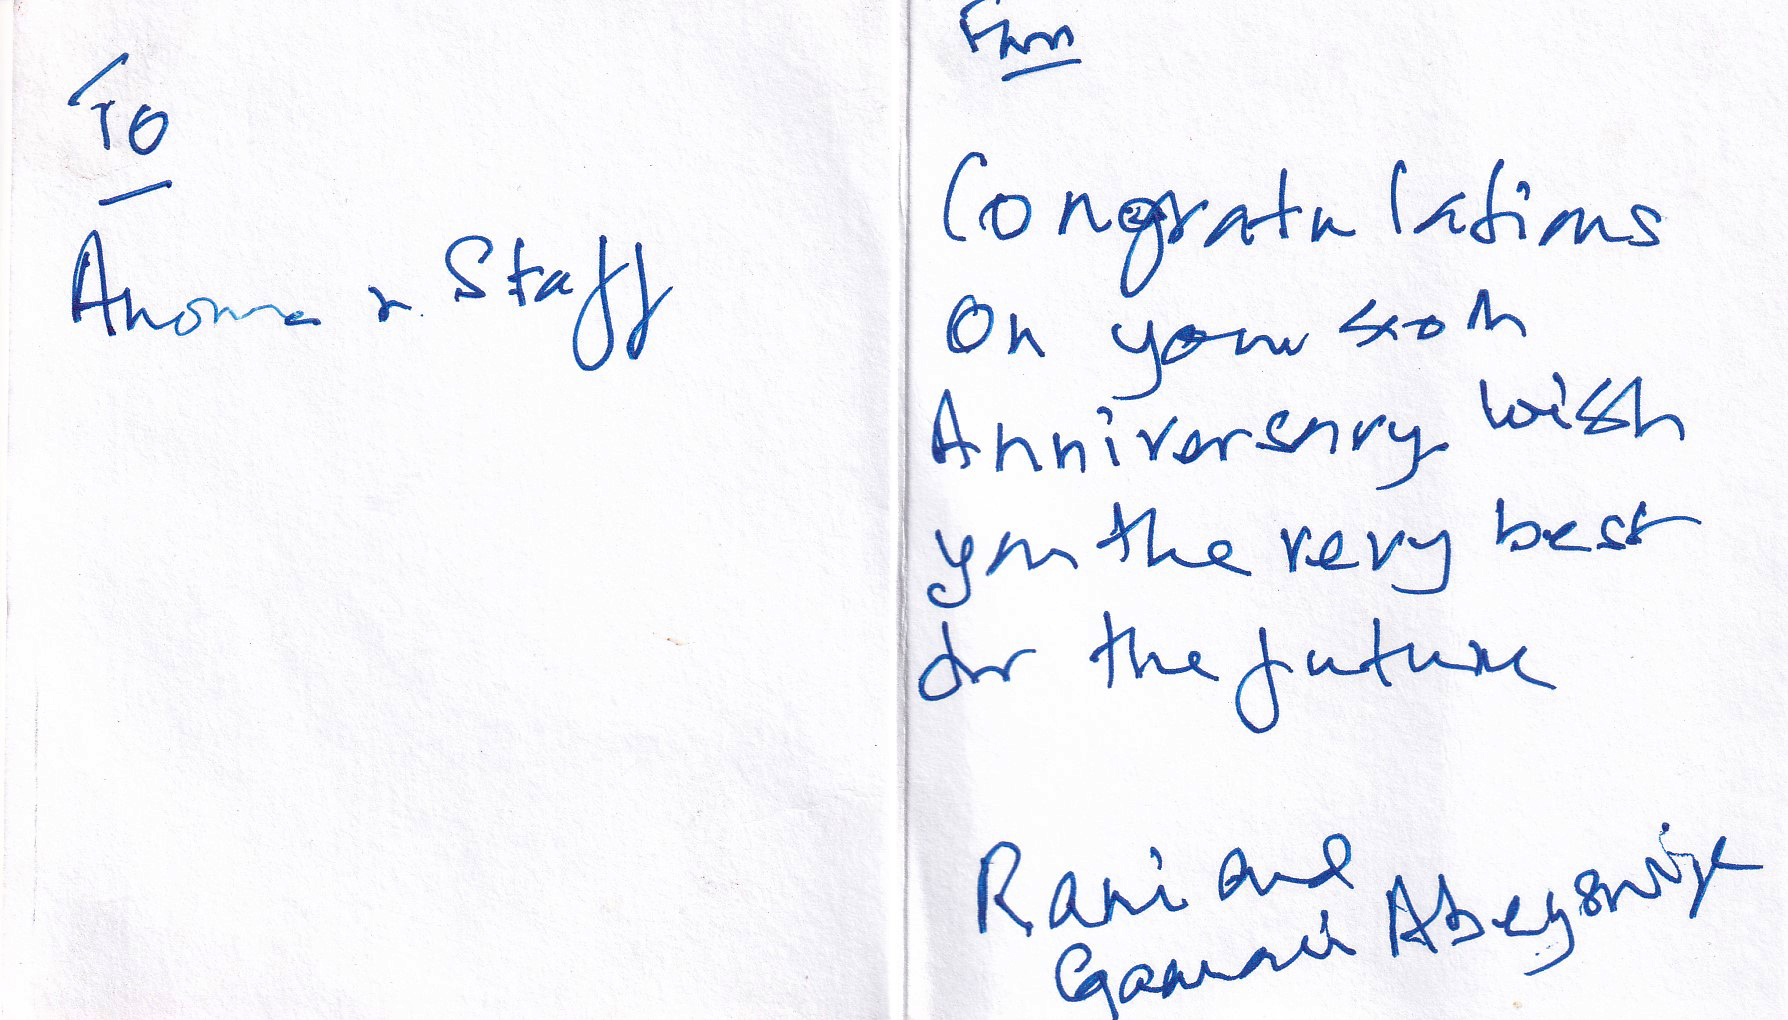 To
Anoma & Staff
From
Congratulations
On your 40th
Anniversary wish
you the very best
for the future
Rani and
Gamani